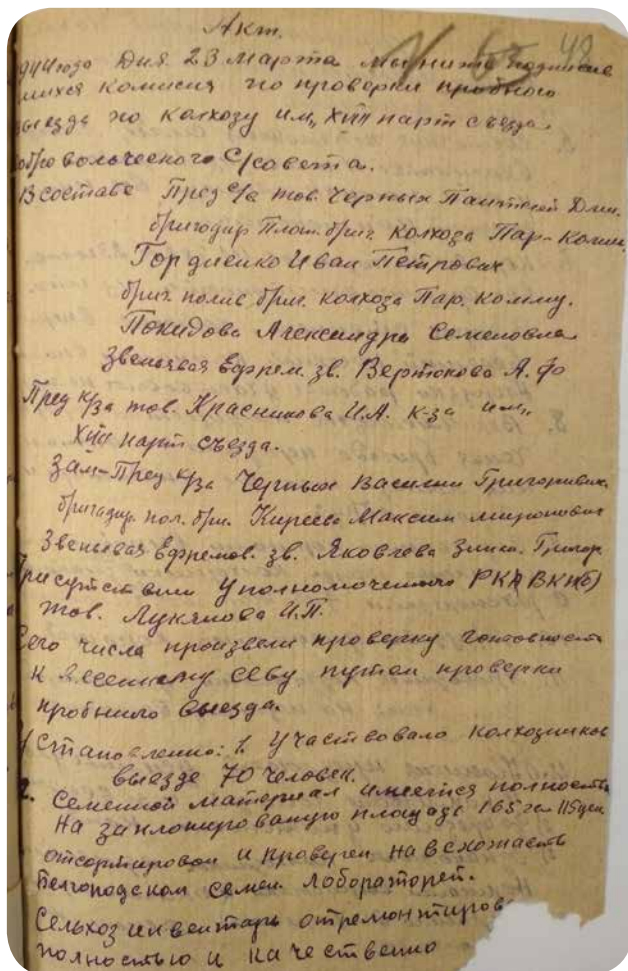 Акт.
49
63
1944 года Дня 23 Марта мы ниже подписав
шихся комисия по проверки пробного
выезда по колхозу им„ XVIII парт съезда.
обро вольческого С/совета.
В составе Пред с/с тов. Черных Пантелей Дми.
бригодир Плот. бриг. колхоза Пар-Комм.
Гордиенко Иван Петрович
бриг. полев бриг. колхоза Пар. Комму.
Покидова Александра Семеновна
Звеньевая Ефрем. зв. Вертокова А. Фо
Пред к/за тов. Красникова И.А. к-за им„
XVIII парт съезда.
Зам-Пред к/за Черных Василии Григоривич
бригадир. пол. бри. Киреев Максим миронович
Звеньевая Ефремов. зв. Яковлева Зинаи. Григор
Присутствии уполномоченного РКА ВКП(б)
тов. Лукянова И.П.
Сего числа произвели проверку готовности
к весеннему севу путем проверки
пробного выезда.
Установленно: 1. Участвовало колхозников
выезде 70 человек.
2. Семенной материал имеется полностью
На запланированую площадь 165 га 115 цен
отсортирован и проверен на всхожасть
Белгородском семен. лобораторей.
Сельхоз инвентарь отремонтиров
полностью и качественно